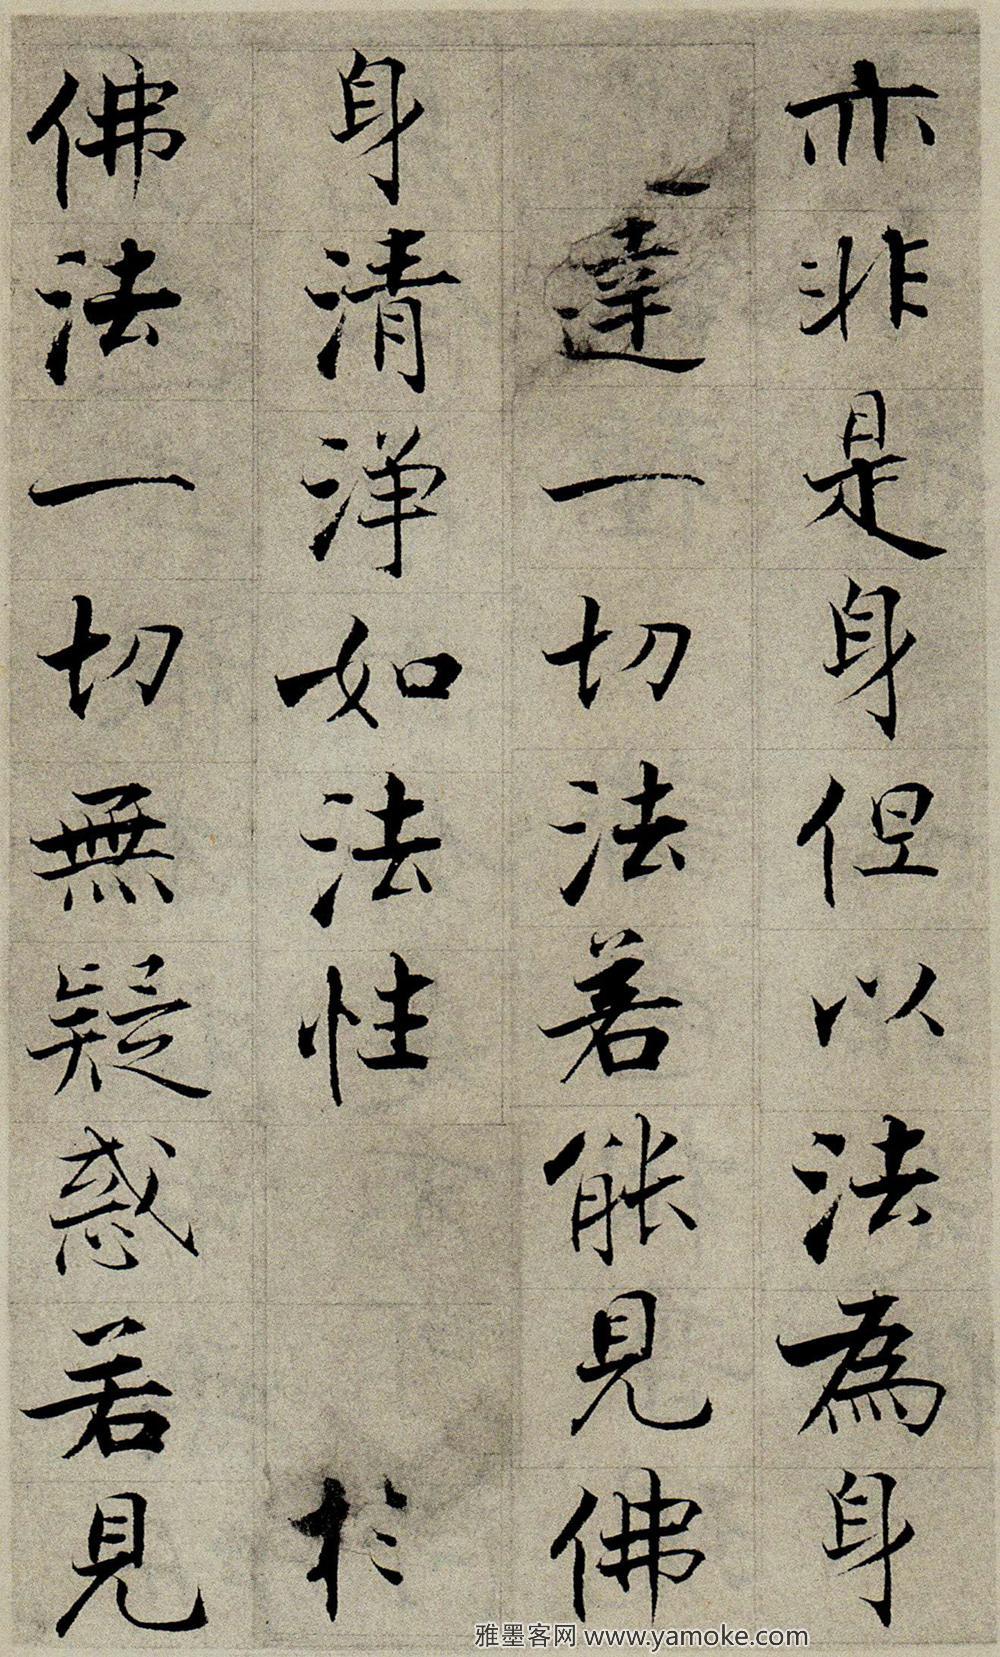 亦非是身但以法為身
達一切法若能見佛
身清淨如法性於
佛法一切無疑惑若見
雅墨客网 www.yamoke.com